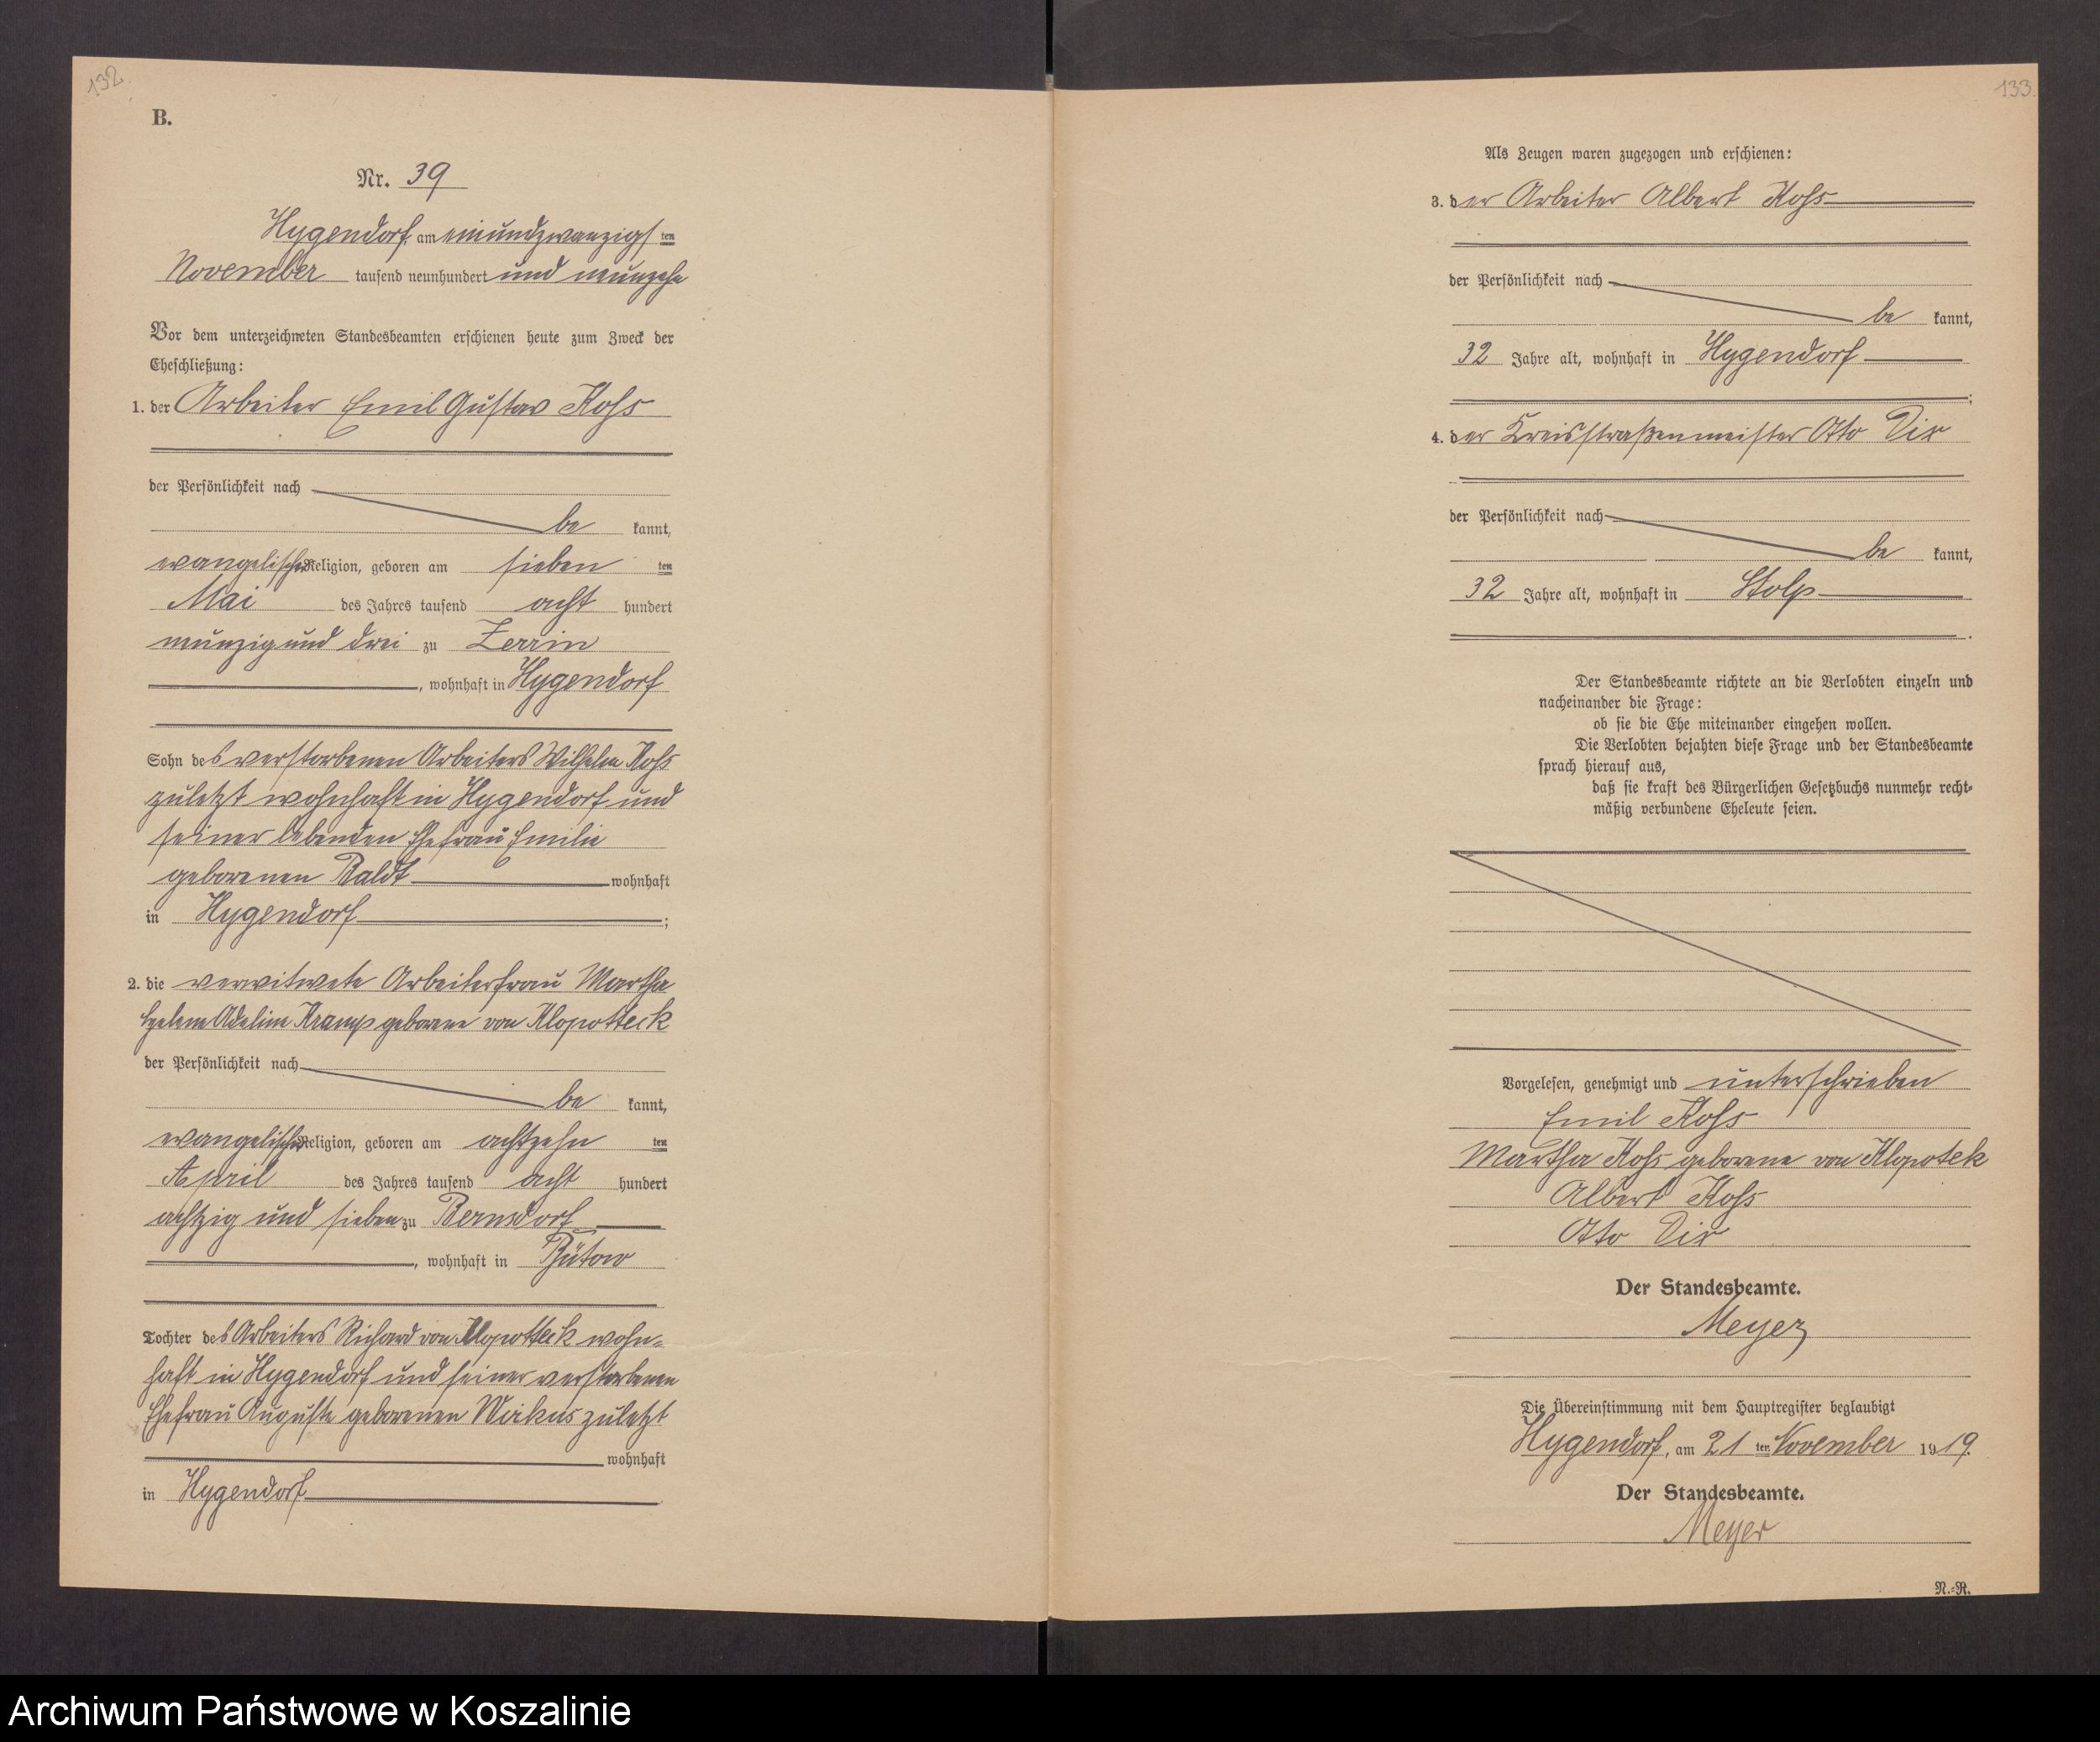 132.
B.
Nr. 39
Hygendorf, am einundzwanzigsten
November tausend neunhundert und neunzehn
Vor dem unterzeichneten Standesbeamten erschienen heute zum Zweck der
Eheschließung:
1. der Arbeiter Emil Gustav Koss
der Persönlichkeit nach
be kannt,
evangelischer Religion, geboren am sieben ten
Mai des Jahres tausend acht hundert
neunzig und drei zu Zerrin
, wohnhaft in Hygendorf
Sohn des verstorbenen Arbeiters Wilhelm Koss
zuletzt wohnhaft in Hygendorf und
seiner lebenden Ehefrau Emilie
geborenen Baldt wohnhaft
in Hygendorf ;
2. die verwitwete Arbeiterfrau Martha
Helene Adeline Kramp geborene von Klopotteck
der Persönlichkeit nach
be kannt,
evangelischer Religion, geboren am achtzehn ten
April des Jahres tausend acht hundert
achtzig und sieben zu Bernsdorf
, wohnhaft in Bütow
Tochter des Arbeiters Richard von Klopotteck wohn-
haft in Hygendorf und seiner verstorbenen
Ehefrau Auguste geborenen Wirkus zuletzt
wohnhaft
in Hygendorf
133.
Als Zeugen waren zugezogen und erschienen:
3. der Arbeiter Albert Koss
der Persönlichkeit nach
be kannt,
32 Jahre alt, wohnhaft in Hygendorf
;
4. der Kreisstraßenmeister Otto Dix
der Persönlichkeit nach
be kannt,
32 Jahre alt, wohnhaft in Stolp
.
Der Standesbeamte richtete an die Verlobten einzeln und
nacheinander die Frage:
ob sie die Ehe miteinander eingehen wollen.
Die Verlobten bejahten diese Frage und der Standesbeamte
sprach hierauf aus,
daß sie kraft des Bürgerlichen Gesetzbuchs nunmehr recht-
mäßig verbundene Eheleute seien.
Vorgelesen, genehmigt und unterschrieben
Emil Koss
Martha Koss geborene von Klopotek
Albert Koss
Otto Dix
Der Standesbeamte.
Meyer
Die Übereinstimmung mit dem Hauptregister beglaubigt
Hygendorf, am 21 ten November 1919.
Der Standesbeamte.
Meyer
N.-R.
Archiwum Państwowe w Koszalinie